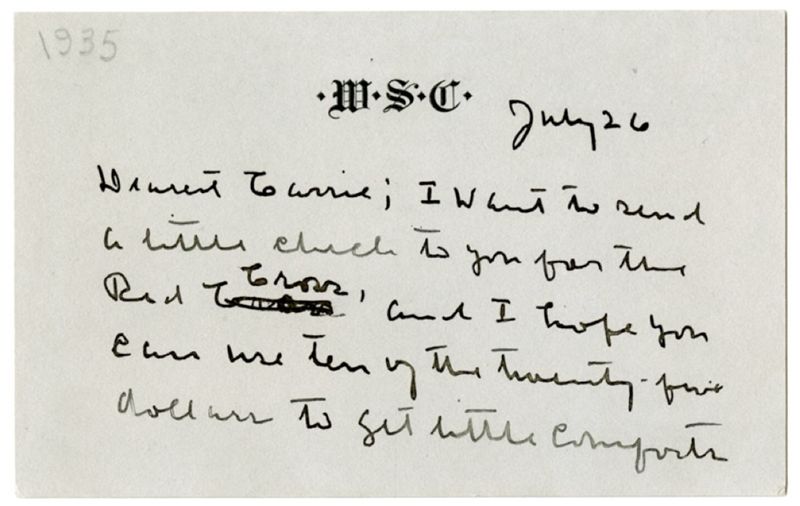 1935
·W·S·C·
July 26
Dearest Carrie; I want to send
a little check to you for the
Red Cross, and I hope you
can use ten of the twenty-five
dollars to get little comforts